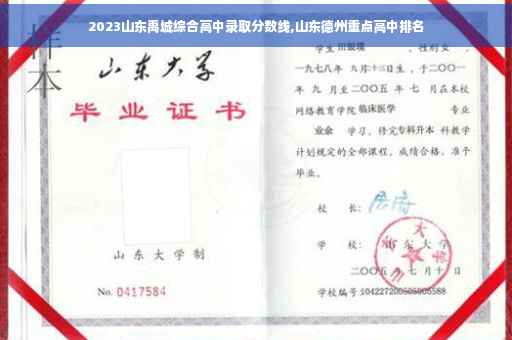 2023山东禹城综合高中录取分数线,山东德州重点高中排名
样本
山东大学
毕业证书
山东大学制
No. 0417584
学生 田银瑞 ，性别 女 ，
一九七八年 九月十三日生，于二〇〇一
年 九 月至二〇〇五 年 七 月在本校
网络教育学院 临床医学 专业
业余 学习，修完专科升本 科教学
计划规定的全部课程，成绩合格，准予
毕业。
校 长：
学 校：山东大学
二〇〇五 年 七 月 十 日
学校编号:104227200505005588